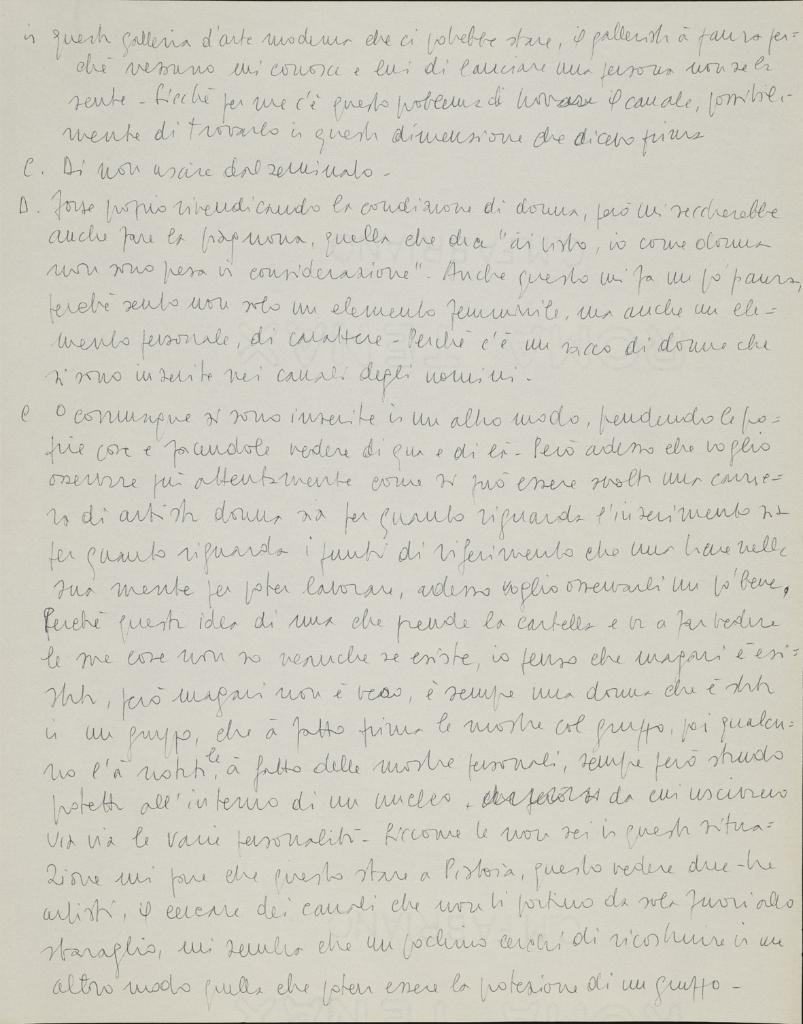 in questa galleria d'arte moderna che ci potrebbe stare, il gallerista à paura per=
ché nessuno mi conosce e lui di lanciare una persona non se la
sente - Sicché per me c'è questo problema di trovare il canale, possibil-
mente di trovarlo in questa dimensione che dicevo prima
C. Di non uscire dal seminato -
D. Forse proprio rivendicando la condizione di donna, però mi seccherebbe
anche fare la piagnona, quella che dice "ài visto, io come donna
non sono presa in considerazione". Anche questo mi fa un po' paura,
perché sento non solo un elemento femminile, ma anche un ele=
mento personale, di carattere - Perché c'è un sacco di donne che
si sono inserite nei canali degli uomini.
C O comunque si sono inserite in un altro modo, prendendo le pro=
prie cose e facendole vedere di qua e di là - Però adesso che voglio
osservare più attentamente come si può essere svolta una carrie=
ra di artista donna sia per quanto riguarda l'inserimento sia
per quanto riguarda i punti di riferimento che una tiene nella
sua mente per poter lavorare, adesso voglio osservarli un po' bene.
Perché questa idea di una che prende la cartella e va a far vedere
le sue cose non so neanche se esiste, io penso che magari è esi=
stita, però magari non è vero, è sempre una donna che è stata
in un gruppo, che à fatto prima le mostre col gruppo, poi qualcu=
no l'à notata, le à fatto delle mostre personali, sempre però stando
protetta all'interno di un nucleo, da cui uscivano
via via le varie personalità - Siccome te non sei in questa situa=
zione mi pare che questo stare a Pistoia, questo vedere due-tre
artisti, il cercare dei canali che non ti portino da sola fuori allo
sbaraglio, mi sembra che un pochino cerchi di ricostruire in un
altro modo quella che poteva essere la protezione di un gruppo -